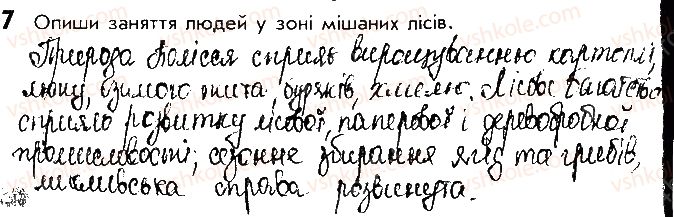 7 Опиши заняття людей у зоні мішаних лісів.
Природа Полісся сприяє вирощуванню картоплі,
льону, озимого жита, буряків, хмелю. Лісове багатство
сприяло розвитку лісової, паперової і деревообробної
промисловості; сезонне збирання ягід та грибів,
мисливська справа розвинута.